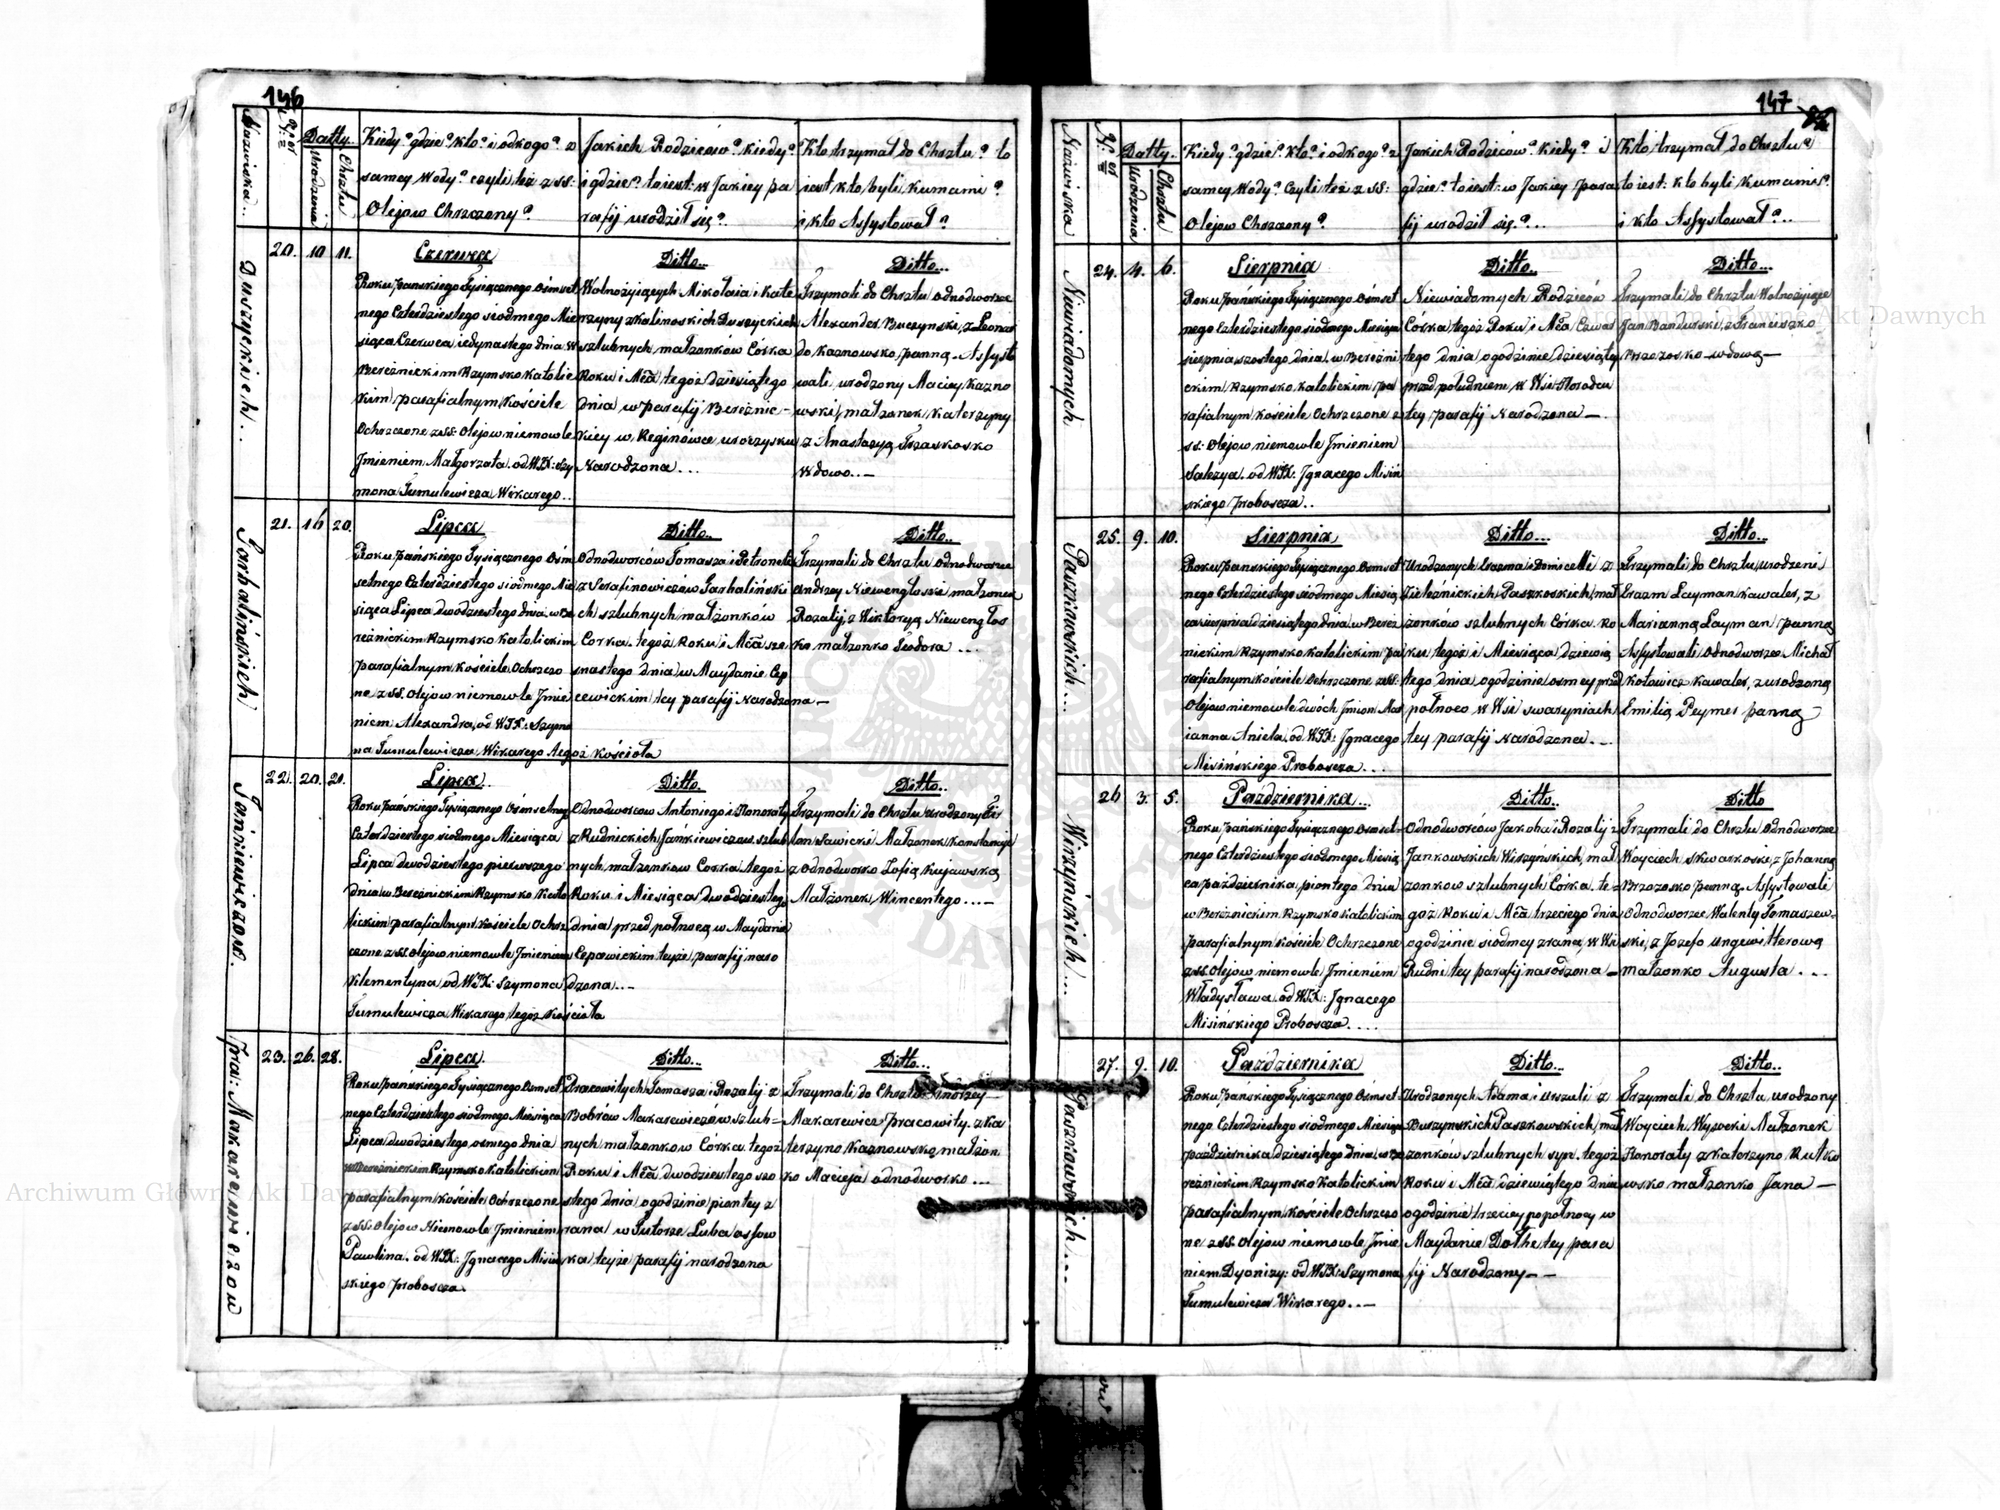 146
Nazwiska..
Nr
Datty.
Urodzenia
Chrztu
Kiedy? gdzie? kto? i odkogo? z
samey Wody? czyli też z SS:
Olejow Chrzczony?
Jakich Rodziców? kiedy?
i gdzie? toiest: w Jakiey pa
rafij urodził się?
Kto trzymał do Chrztu? to
iest kto byli Kumami?
i kto Assystował?
Duszyckich..
20. 10 11.
Czerwca
Roku Pańskiego Tysiącznego Ośmset
nego Czterdziestego siodmego Mie
siąca Czerwca iedynastego dnia w
Bereźnickim Rzymsko Katolic
kim parafialnym Kościele
Ochrzczone z SS: Olejow niemowle
Jmieniem Małgorzata. od WJX: Szy
mona Tumulewicza Wikarego..
Ditto..
Wolnożyiących Mikołaia i Kate
rzyny z Kalinoskich Duszyckich
szlubnych małżonków Córka
Roku i Mca tegoż dziesiątego
dnia w parafij Bereźnic-
kiey w Reginówce uroczysku
Narodzona...
Ditto...
Trzymali do Chrztu Odnodworze
Alexander Buczynski, z Leonar
do Kaznowsko panną. Assysto
wali urodzony Maciey Kazno
wski małżonek Katerzyny
z Anastazyą Trzaskosko
Wdowo..-
Garbalińskich
21. 16 20.
Lipca
Roku Pańskiego Tysiącznego Ośm
setnego Czterdziestego siodmego Mie
siąca Lipca dwódziestego dnia w Be
reźnickim Rzymsko Katolickim
parafialnym Kościele Ochrzczo
ne z SS. Olejow niemowle Jmie
niem Alexandra, od WJX: Szymo
na Tumulewicza Wikarego tegoż Kościoła
Ditto..
Odnodworców Tomasza i Petroneli
z Serafinowiczow Garbaliński
ch szlubnych małżonków
Corka tegoż Roku i Mca sze
snastego dnia w Maydanie Cep
cewickim tey parafij Narodzona-
Ditto..
Trzymali do Chrztu Odnodworzec
Andrzey Niewengłoski małżonek
Rozalij, z Wiktoryą Niewengłos
ko małżonko Teodora...
Jankiewiczow.
22. 20. 21.
Lipca
Roku Pańskiego Tysiącznego Ośmsetnego
Czterdziestego siodmego Miesiąca
Lipca dwodziestego pierwszego
dnia w Bereźnickim Rzymsko Kato
lickim parafialnym Kościele Ochrz
czone z SS. Olejow niemowle Jmieniem
Klementyna od WJX: Szymona
Tumulewicza Wikarego tegoż Kościoła
Ditto.
Odnodworcow Antoniego i Honoraty
z Rudnickich Jankiewiczow szlub
nych małżonkow Corka tegoż
Roku i Miesiąca dwodziestego
dnia przed połnocą w Maydanie
Cepcewickim teyże parafij naro
dzona..-
Ditto..
Trzymali do Chrztu Urodzony Fir
Sawicki Małżonek Konstancyi
z Odnodworko Zofią Kujawską
Małżonek Wincentego...-
pra: Makarewiczow
23. 26. 28.
Lipca
Roku Pańskiego Tysiącznego Ośmset
nego Czterdziestego siodmego Miesiąca
Lipca dwódziestego osmego dnia
w Bereźnickim Rzymsko Katolickim
parafialnym Kościele Ochrzczone
z SS. Olejow Niemowle Jmieniem
Pawlina. od WJX: Jgnacego Misiń
skiego proboszcza.
Ditto..
Pracowitych Tomasza i Rozalij z
Bobrów Makarewiczów szlub=
nych małżonkow Córka tegoż
Roku i Mca dwodziestego szo
stego dnia ogodzinie piontey z
rana w Futorze Luba
ka teyże parafij narodzona
Ditto...
Trzymali do Chrztu Andrzey
Makarewicz Pracowity. z Ka
terzyno Kaznowsko małżon
ko Macieja odnodworko...
147
Nazwiska
Nr
Datty.
Urodzenia
Chrztu
Kiedy? gdzie? kto? i odkogo? z
samey Wody? Czyli też z SS:
Olejow Chrzczony?
Jakich Rodziców? kiedy? i
gdzie? toiest: w Jakiey para
fij urodził się?...
Kto trzymał do Chrztu?
toiest: kto byli Kumami?
i kto Assystował?..
Niewiadomych
24. 4. 6.
Sierpnia
Roku Pańskiego Tysiącznego Ośmset
nego Czterdziestego siodmego Miesiąca
sierpnia szostego dnia, w Bereźni
ckim Rzymsko Katolickim pa
rafialnym Kościele Ochrzczone z
SS: Olejow niemowle Jmieniem
Salezya. od WJX: Jgnacego Misiń
skiego Proboszcza..
Ditto..
Niewiadomych Rodziców
Córka tegóż Roku i Mca Czwar
tego dnia ogodzinie dziesiątey
przed południem, w Wsi Horodcu
tey parafij Narodzona-.
Ditto...
Trzymali do Chrztu Wolnożyiące
Jan Bandurski, z Franciszko
Brzozosko wdową-
Paszkowskich...
25. 9. 10.
Sierpnia
Roku Pańskiego Tysiącznego Ośmset
nego Czterdziestego siodmego Miesią
ca sierpnia dziesiątego dnia w Bereź
nickim Rzymsko Katolickim pa
rafialnym Kościele Ochrzczone z SS:
Olejow niemowle dwóch Jmion Mar
ianna Aniela, od WJX: Jgnacego
Misińskiego Proboszcza...
Ditto...
Urodzonych Erazma i Domicelli z
Zieleźnickich Paszkoskich, mał
żonków szlubnych Córka. Ro
ku tegoż i Miesiąca dziewią
tego dnia ogodzinie osmey przed
połnoco w Wsi Swaryniach
tey parafij Narodzona...
Ditto..
Trzymali do Chrztu urodzeni
Erazm Layman Kawaler, z
Marianną Layman panną
Assystowali Odnodworzec Michał
Kotowicz Kawaler, z urodzoną
Emilią Peymer panną-
Wirzyńskich...
26 3. 5.
Października...
Roku Pańskiego Tysiącznego Osmset-
nego Czterdziestego siodmego Miesią
ca Października, piontego dnia
w Bereźnickim Rzymsko Katolickim
Parafialnym Kościele Ochrzczone
z SS. Olejow niemowle Jmieniem
Władysława. od WJX: Jgnacego
Misińskiego Proboszcza....
Ditto..
Odnodworców Jakoba i Rozalij z
Jankowskich Wirzyńskich, mał
żonkow szlubnych Córka. te=
goż Roku i Mca trzeciego dnia
ogodzinie siodmey zrana, w Wsi
Rudni tey parafij narodzona-
Ditto
Trzymali do Chrztu Odnodworzec
Woyciech Skwarkoski, z Johanną
Brzozosko panną. Assystowali
Odnodworzec Walenty Tomaszew-
ski, z Jozefo Ungewitterową
małżonko Augusta...
Paszkowskich...
27. 9. 10.
Października
Roku Pańskiego Tysiącznego Ośmset
nego Czterdziestego siodmego Miesiąca
Października dziesiątego dnia, w Be
reźnickim Rzymsko Katolickim
parafialnym Kościele Ochrzczo
ne z SS. Olejow niemowle Jmie
niem Dyonizy: od WJX: Szymona
Tumulewicza Wikarego..-
Ditto...
Urodzonych Adama i Urszuli z
Buszynskich Paszkowskich, mał
żonków szlubnych syn. tegoż
Roku i Mca dziewiątego dnia
ogodzinie trzeciey popołnocy w
Maydanie Dołhe tey para
fij Narodzony--
Ditto..
Trzymali do Chrztu urodzony
Woyciech Wysocki Małżonek
Honoraty z Katerzyno Rutko
wsko małżonko Jana-
Archiwum Główne Akt Dawnych
Archiwum Główne Akt Dawnych